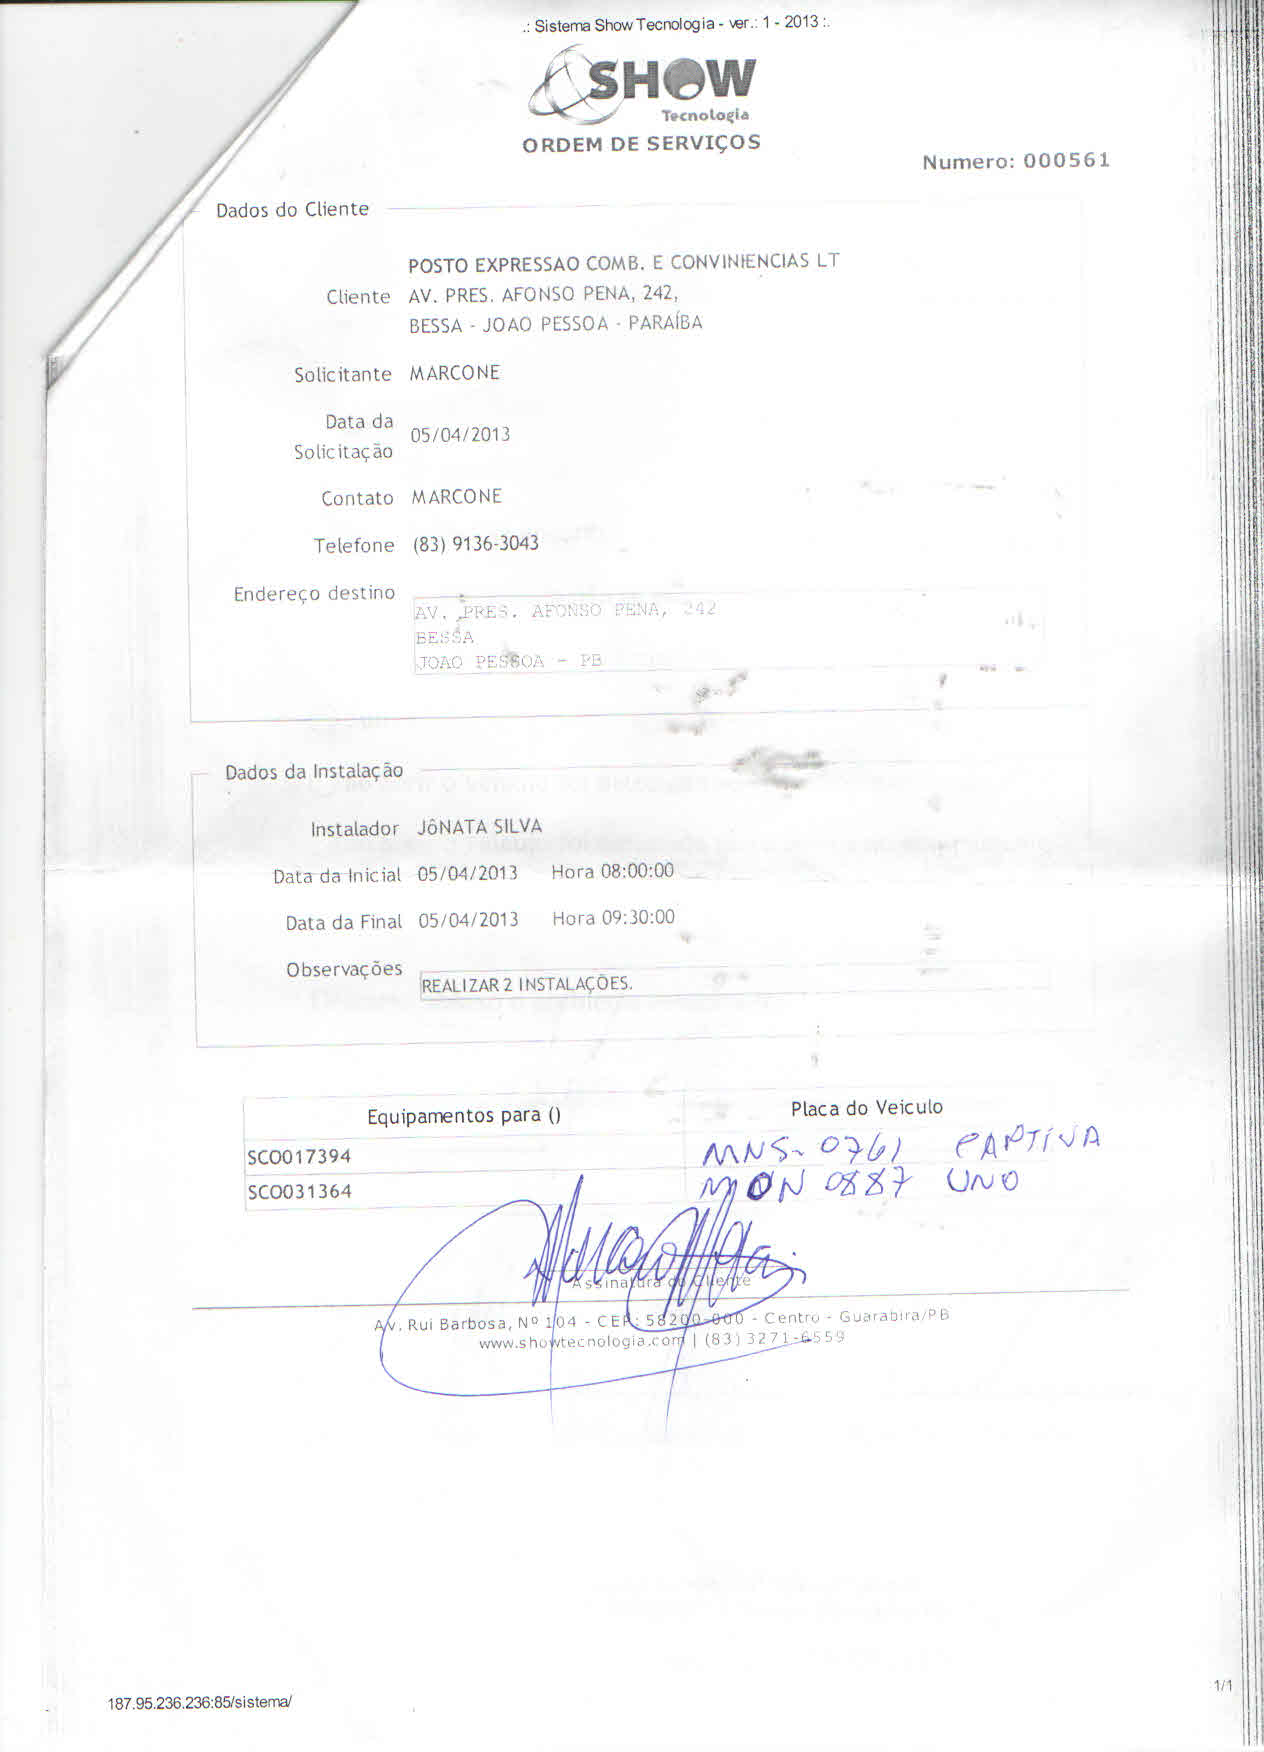 .: Sistema Show Tecnologia - ver.: 1 - 2013 :.
SHOW
Tecnologia
ORDEM DE SERVIÇOS
Numero: 000561
Dados do Cliente
POSTO EXPRESSAO COMB. E CONVINIENCIAS LT
Cliente AV. PRES. AFONSO PENA, 242,
BESSA - JOAO PESSOA - PARAÍBA
Solicitante MARCONE
Data da
Solicitação 05/04/2013
Contato MARCONE
Telefone (83) 9136-3043
Endereço destino
AV. PRES. AFONSO PENA, 242
BESSA
JOAO PESSOA - PB
Dados da Instalação
Instalador JÔNATA SILVA
Data da Inicial 05/04/2013 Hora 08:00:00
Data da Final 05/04/2013 Hora 09:30:00
Observações
REALIZAR 2 INSTALAÇÕES.
Equipamentos para () Placa do Veiculo
SCO017394 MNS-0761 CAPTIVA
SCO031364 MON 0887 UNO
Assinatura do Cliente
Av. Rui Barbosa, Nº 104 - CEP: 58200-000 - Centro - Guarabira/PB
www.showtecnologia.com | (83) 3271-6559
187.95.236.236:85/sistema/
1/1